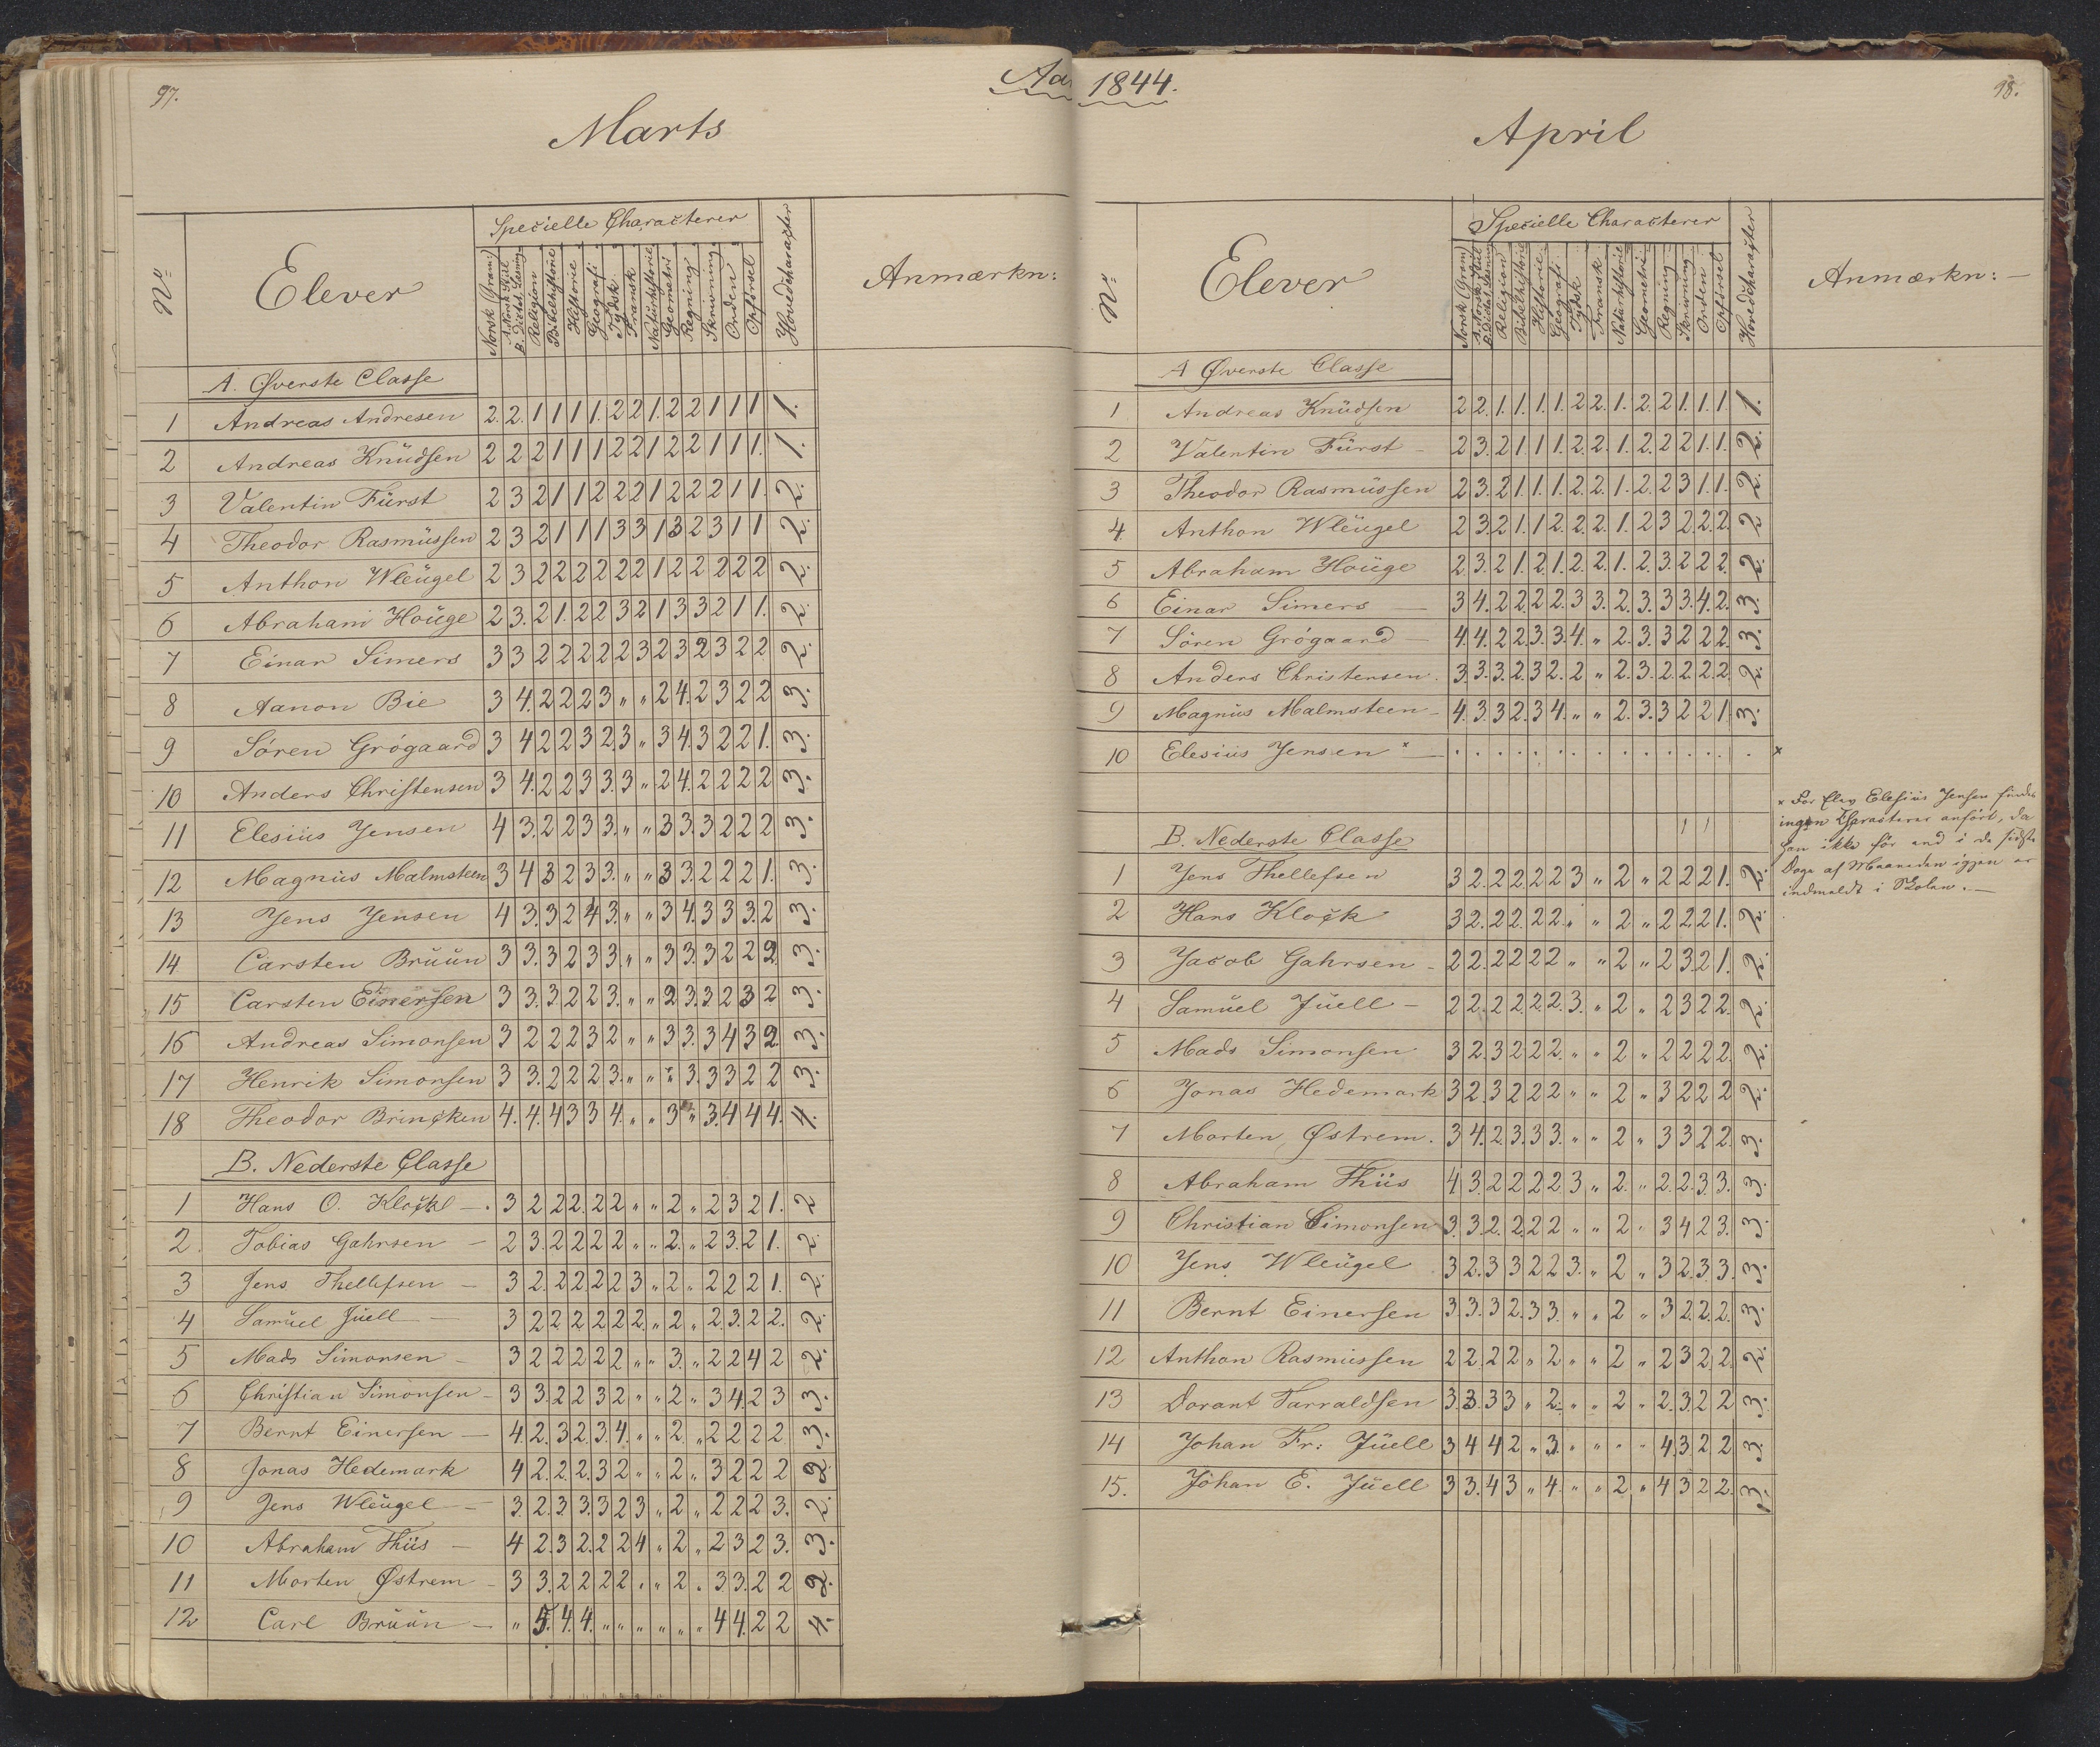 97.
Aa
Marts
Nº
Elever
Specielle Characterer
Norsk (Gram:)
A. Norsk Stiil
B. Dictat. Læsning
Religion
Bibelhistorie
Historie
Geografi
Tydsk
Fransk
Naturhistorie
Geometri
Regning
Skrivning
Orden
Opførsel
Hovedcharacter
Anmærkn:
A. Øverste Classe
1 Andreas Andresen 2. 2. 1 1 1 1. 2 2 1. 2 2 1 1 1 1.
2 Andreas Knudsen 2 2 2 1 1 1 2 2 1 2 2 1 1 1. 1.
3 Valentin Fürst 2 3 2 1 1 2 2 2 1 2 2 2 1 1. 2.
4 Theodor Rasmussen 2 3 2 1 1 1 3 3 1 3 2 3 1 1 2.
5 Anthon Wleugel 2 3 2 2 2 2 2 2 1 2 2 2 2 2 2.
6 Abraham Houge 2 3. 2 1. 2 2 3 2 1 3 3 2 1 1. 2.
7 Einar Simers 3 3 2 2 2 2 2 3 2 3 2 3 2 2 2.
8 Aanon Bie 3 4. 2 2 2 3 " " 2 4. 2 3 2 2 3.
9 Sören Grögaard 3 4 2 2 3 2. 3 " 3 4. 3 2 2 1. 3.
10 Anders Christensen 3 4. 2 2 3 3. 3 " 2 4. 2 2 2 2 3.
11 Elesius Jensen 4 3. 2 2 3 3. " " 3 3. 3 2 2 2 3.
12 Magnus Malmsteen 3 4 3 2 3 3. " " 3 3. 2 2 2 1. 3.
13 Jens Jensen 4 3. 3 2 4 3. " " 3 4. 3 3 3. 2 3.
14 Carsten Bruun 3 3. 3 2 3 3. " " 3 3. 3 2 2 2. 3.
15 Carsten Einersen 3 3. 3. 2 2 3. " " 2 3. 3 2 3 2 3.
16 Andreas Simonsen 3 2 2 2 3 2 " " 3 3. 3 4 3 2. 3.
17 Henrik Simonsen 3 3. 2 2 2 3. " " " 3. 3 3 2 2 3.
18 Theodor Brincken 4. 4. 4 3 3 4. " " 3 " 3. 4 4 4. 4.
B. Nederste Classe
1 Hans O. Klock 3 2 2 2. 2 2 " " 2 " 2 3 2 1. 2
2. Tobias Gahrsen 2 3. 2 2 2 2 " " 2. " 2 3. 2 1. 2.
3 Jens Thellefsen 3 2. 2 2 2 2 3 " 2 " 2 2 2 1. 2.
4 Samuel Juell 3 2 2 2 2 2 2. " 2 " 2. 3. 2 2. 2.
5 Mads Simonsen 3 2 2 2 2 2 " " 3. " 2 2 4 2 2.
6 Christian Simonsen 3 3. 2 2 3 2 " " 2 " 3 4. 2 3 3.
7 Bernt Einersen 4. 2. 3 2. 3. 4. " " 2. " 2 2 2 2 3.
8 Jonas Hedemark 4 2. 2. 2. 3 2 " " 2 " 3 2 2 2 2.
9 Jens Wleugel 3. 2. 3. 3. 3 2 3 " 2 " 2 2 2 3. 2.
10 Abraham Thiis 4 2. 3 2. 2 2 4 " 2 " 2 3 2 3. 3.
11 Morten Østrem 3 3. 2 2 2 2 " " 2 " 3 3. 2 2 2.
12 Carl Bruun " 5. 4. 4. " " " " " " 4 4. 2 2 4.
1844.
98.
April
Nº
Elever
Specielle Characterer
Norsk (Gram)
A. Norsk Stiil
B. Dictat. Læsning
Religion
Bibelhistorie
Historie
Geografi
Tydsk
Fransk
Naturhistorie
Geometri
Regning
Skrivning
Orden
Opførsel
Hovedcharacter
Anmærkn:
A Øverste Classe
1 Andreas Knudsen 2 2. 1. 1. 1. 1. 2 2. 1. 2. 2 1. 1. 1. 1.
2 Valentin Fürst 2 3. 2 1 1 1. 2. 2. 1. 2. 2 2 1. 1. 2.
3 Theodor Rasmussen 2 3. 2 1. 1. 1. 2. 2. 1. 2. 2 3 1. 1. 2.
4. Anthon Wleugel 2 3. 2 1. 1 2. 2. 2. 1. 2 3 2 2. 2. 2
5 Abraham Houge 2. 3. 2 1. 2. 1. 2. 2. 1. 2. 3. 2 2 2. 2.
6 Einar Simers 3 4. 2 2. 2 2. 3 3. 2. 3. 3 3. 4. 2. 3.
7 Sören Grögaard 4. 4. 2 2. 3. 3. 4. " 2. 3. 3 2 2 2. 3.
8 Anders Christensen 3. 3. 3. 2. 3 2. 2 " 2. 3. 2. 2. 2. 2. 2.
9 Magnus Malmsteen 4. 3. 3 2. 3 4. " " 2. 3. 3 2 2 1. 3.
10 Elesius Jensen x . . . . . . . . . . . . . . . x
x For Elev Elesius Jensen findes
ingen Characterer anført, da
han ikke før end i de sidste
Dage af Maaneden igjen er
indmeldt i Skolen. —
B. Nederste Classe
1 Jens Thellefsen 3 2. 2 2. 2 2 3 " 2 " 2 2 2 1. 2.
2 Hans Klock 3 2. 2 2. 2 2. " " 2 " 2 2. 2 1. 2.
3 Jacob Gahrsen 2 2. 2 2 2 2 " " 2 " 2 3. 2 1. 2.
4 Samuel Juell 2 2. 2 2. 2. 2. 3. " 2 " 2 3 2 2. 2.
5 Mads Simonsen 3 2. 3 2 2 2. " " 2 " 2 2 2 2. 2.
6 Jonas Hedemark 3 2. 3 2 2 2 " " 2 " 3 2 2 2 2.
7 Morten Østrem. 3 4. 2. 3. 3 3. " " 2 " 3 3 2 2. 3.
8 Abraham Thiis 4 3. 2 2 2 2. 3 " 2. " 2. 2. 3. 3. 3.
9 Christian Simonsen 3. 3. 2. 2. 2 2 " " 2. " 3 4 2 3. 3.
10 Jens Wleugel 3 2. 3 3 2 2 3. " 2 " 3 2. 3. 3. 3.
11 Bernt Einersen 3. 3. 3 2. 3 3. " " 2 " 3 2. 2. 2. 3.
12 Anthon Rasmussen 2 2. 2 2 " 2 " " 2 " 2 3 2 2. 2.
13 Dorant Tarraldsen 3. 3. 3 3 " 2. " " 2 " 2. 3. 2 2 3.
14 Johan Fr: Juell 3 4 4 2 " 3. " " " " 4. 3. 2 2 3.
15. Johan E. Juell 3 3. 4 3 " 4. " " 2 " 4 3 2 2. 3.